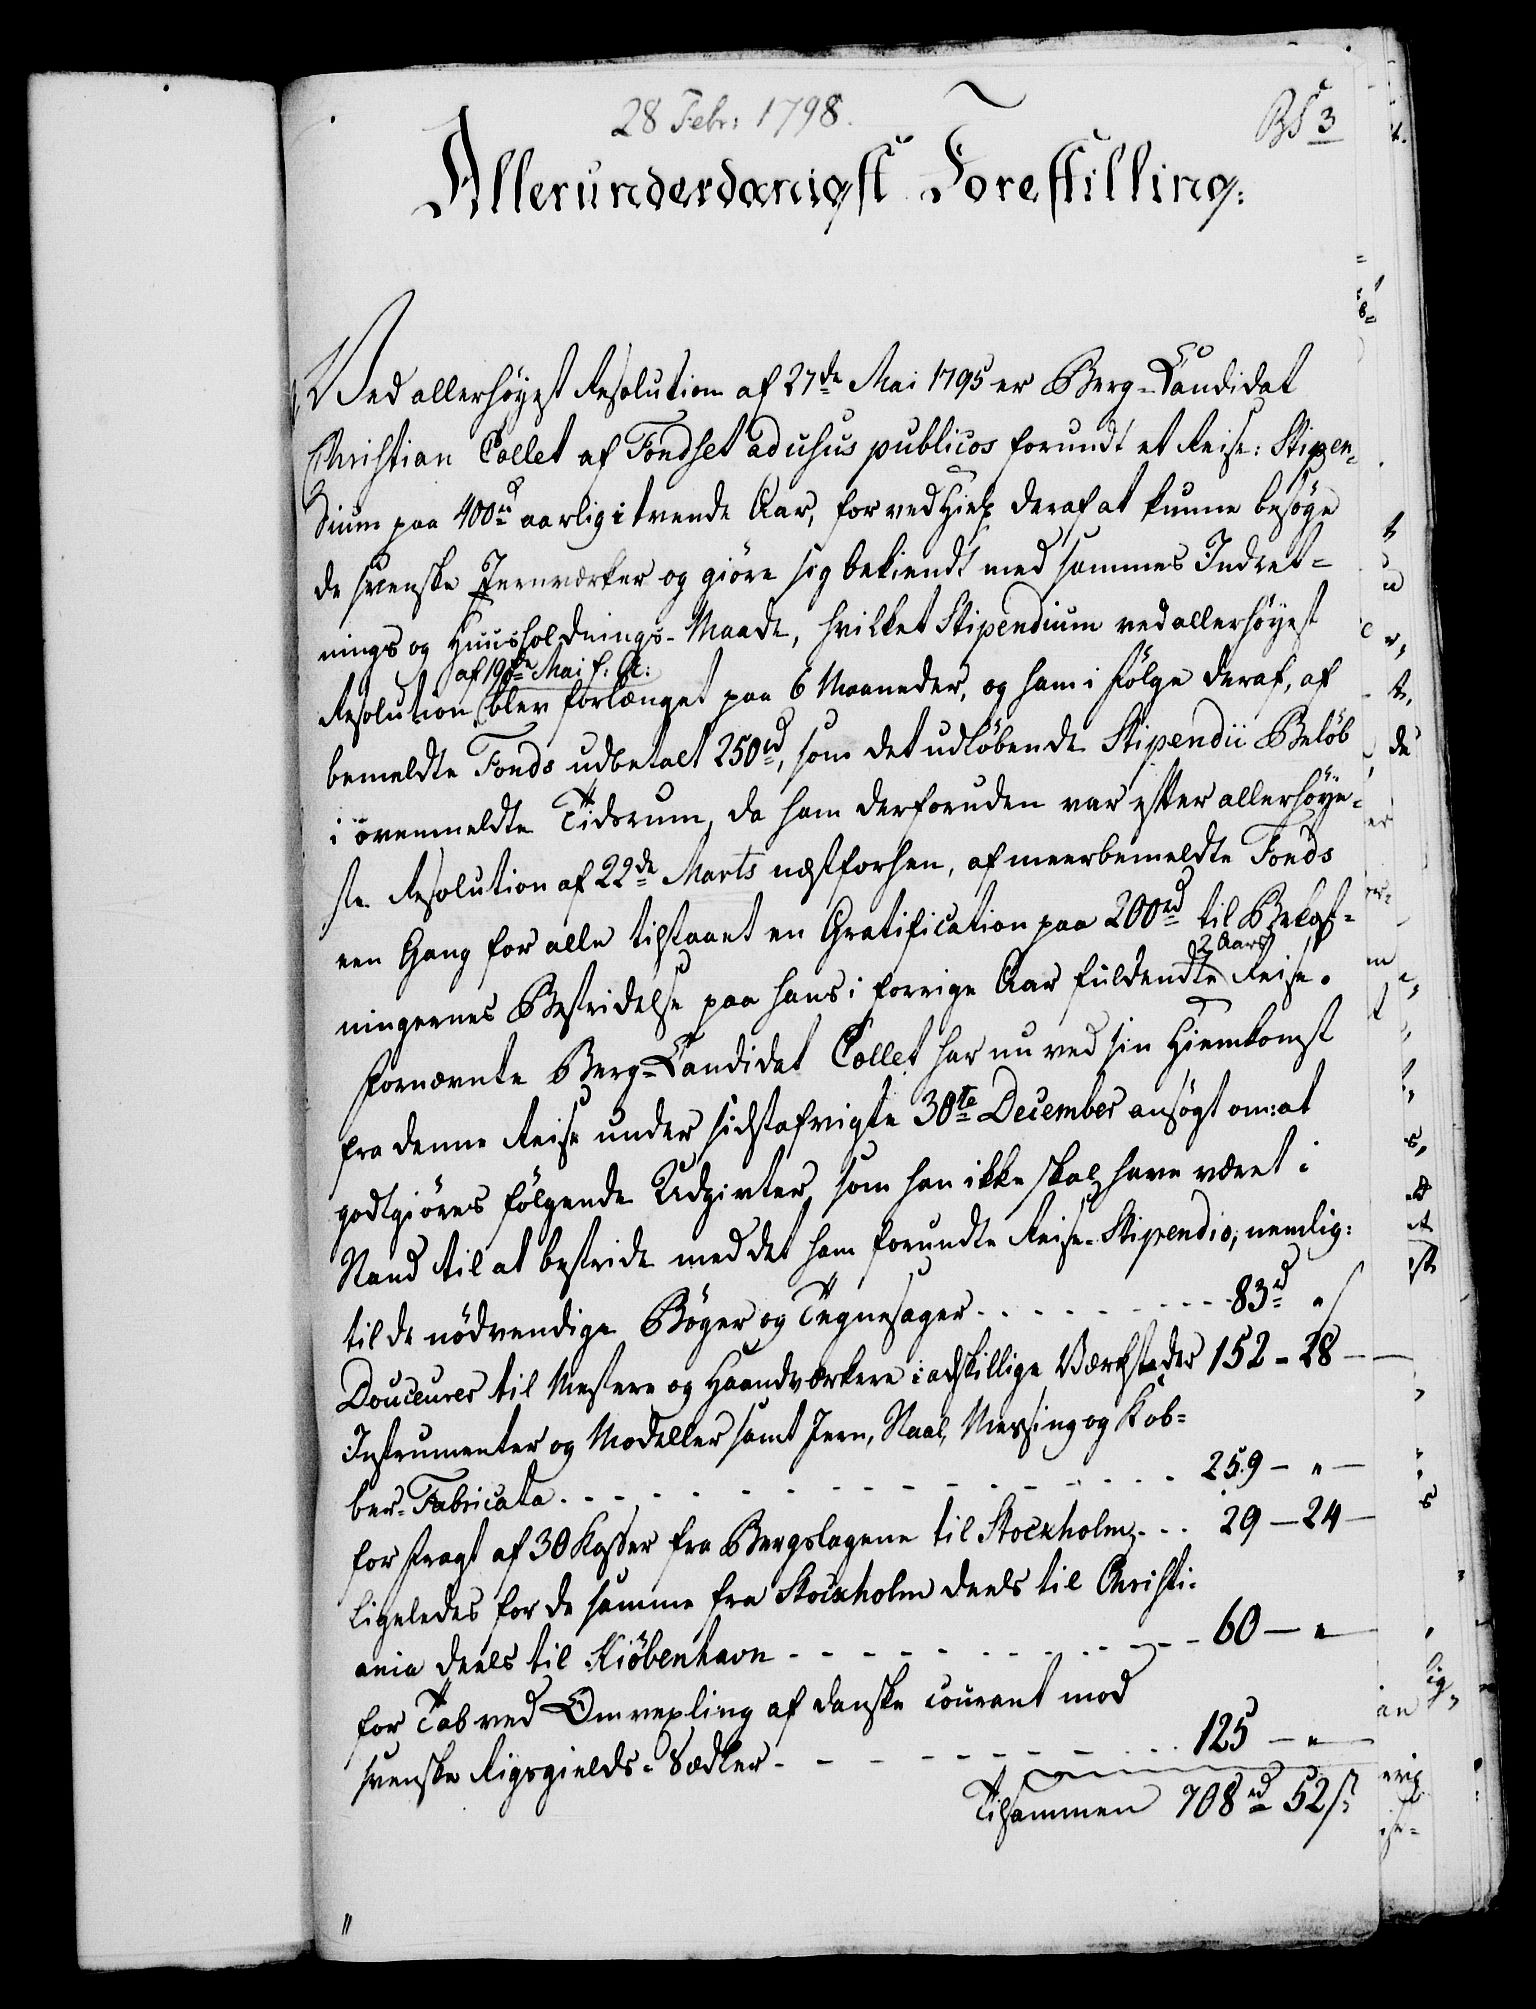 28 Febr: 1798.
Bf 3
Allerunderdanigst Forestilling:
Ved allerhøyest Resolution af 27de Mai 1795 er Berg-Candidat
Christian Collet af Fondset ad usus publicos forundt et Reise-Stipen-
dium paa 400rd aarlig i tvende Aar, for ved Hielp deraf at kunne besøge
de svenske Jernværker og giøre sig bekiendt med sammes Indret-
nings og Huusholdnings-Maade, hvilket Stipendium ved allerhøyest
af 19de Mai f. A:
Resolution blev forlænget paa 6 Maaneder, og ham i Følge deraf, af
bemeldte Fonds udbetalt 250rd, som det udløbende Stipendii Beløb
i ovenmeldte Tidsrum, da ham derforuden var efter allerhøye-
ste Resolution af 22de Marts næstforhen, af meerbemeldte Fonds
een Gang for alle tilstaaet en Gratification paa 200rd til Bekost-
2 Aars
ningernes Bestridelse paa hans i forrige Aar fuldendte Reise.
Fornævnte Berg-Candidat Collet har nu ved sin Hiemkomst
fra denne Reise under sidstafvigte 30te December ansøgt om: at
godtgiøres følgende Udgivter, som han ikke skal have været i
Stand til at bestride med det ham forundte Reise-Stipendio, nemlig:
til de nødvendige Bøger og Tegnesager - - - 83rd " s
Douceurer til Mestere og Haandværkere i adskillige Værksteder 152 - 28 -
Instrumenter og Modeller samt Jern, Staal, Messing og Kob-
ber-Fabricata - - - 259 - " -
for Fragt af 30 Kasser fra Bergslagene til Stockholm - - - 29 - 24 -
Ligeledes for de samme fra Stockholm deels til Christi-
ania deels til Kiøbenhavn - - - 60 - " -
for Tab ved Omvexling af danske courant mod
svenske Rigsgields-Sædler - - - 125 - " -
Tilsammen 708rd 52s